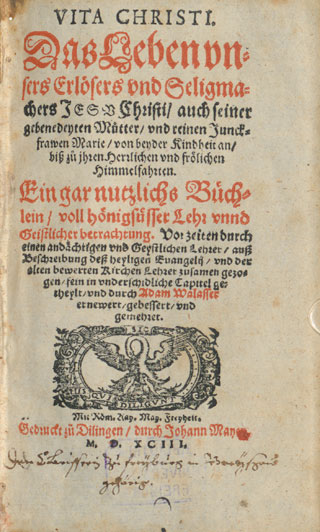 VITA CHRISTI.
Das Leben vn-
sers Erlösers vnd Seligma-
chers JESV Christi/ auch seiner
gebenedeyten Mütter/ vnd reinen Junck-
frawen Marie/ von beyder Kindheit an/
biß zů jhren Herrlichen vnd frölichen
Himmelfahrten.
Ein gar nutzlichs Büch-
lein/ voll hönigsüsser Lehr vnnd
Geistlicher betrachtung. Vor zeiten durch
einen andächtigen vnd Geistlichen Lehrer/ auß
Beschreibung deß heyligen Euangelij/ vnd der
alten bewerten Kirchen Lehrer zusamen gezo-
gen/ fein in vnderschidliche Capitel ge-
theylt/ vnd durch Adam Walasser
ernewert/ gebessert/ vnd
gemehret.
DILIGUNT
Mit Röm. Kay. May. Freyheit.
Gedruckt zů Dilingen/ durch Johann Mayer.
M. D. XCIII.
zu freyburg in
gehörig.